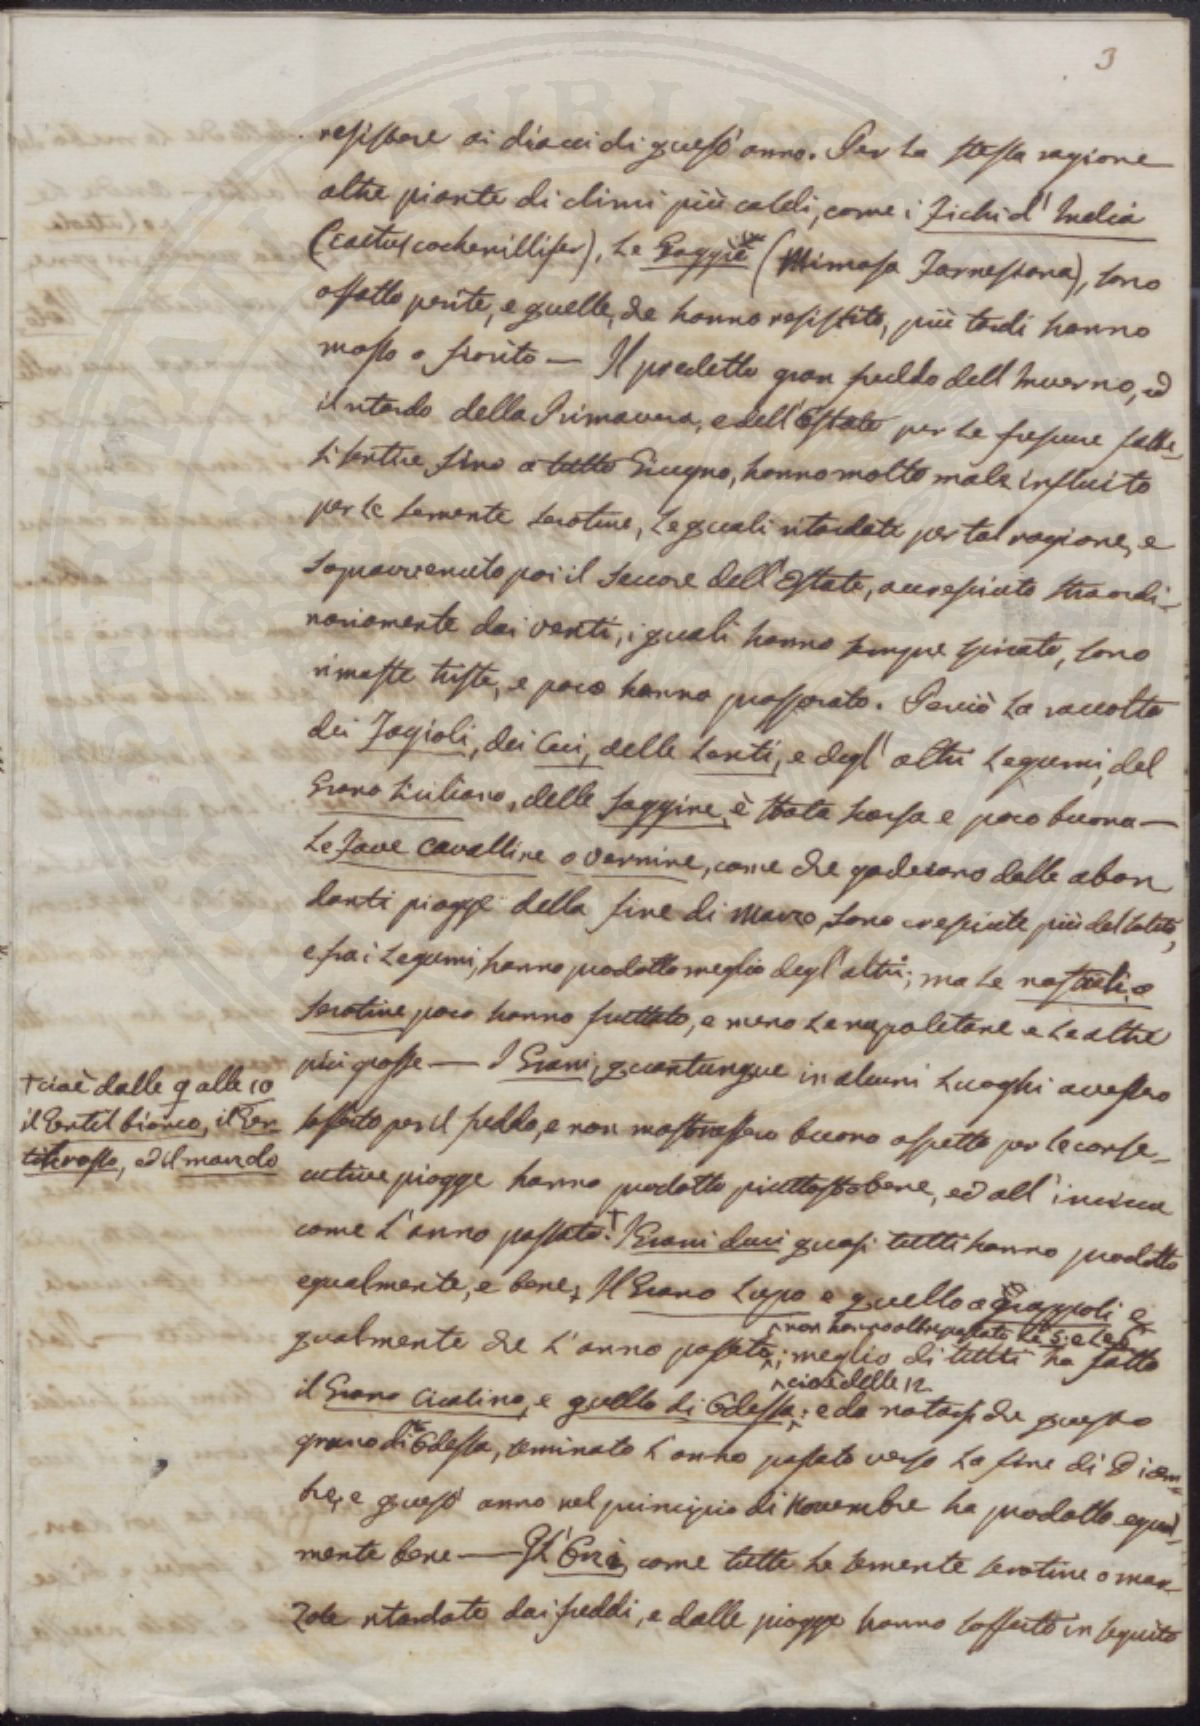 3
resistere ai diacci di quest'anno. Per la stessa ragione
altre piante di climi più caldi, come i Fichi d'India
(Cactus cochenillifer), le Gaggie (Mimosa Farnesiana), sono
affatto perite, e quelle, che hanno resistito, più tardi hanno
mosso o fiorito — Il predetto gran freddo dell'Inverno, ed
il ritardo della Primavera, e dell'Estate per le frescure fatte-
si sentire fino a tutto Giugno, hanno molto male influito
per le semente serotine, le quali ritardate per tal ragione, e
sopravvenuto poi il seccore dell'Estate, accresciuto straordi-
nariamente dai venti, i quali hanno sempre spirato, sono
rimaste triste, e poco hanno prosperato. Perciò la raccolta
dei Fagioli, dei Ceci, delle Lenti, e degl'altri Legumi, del
Grano Siciliano, delle Saggine, è stata scarsa e poco buona —
Le Fave cavalline o vernine, come che goderono delle abon
danti piogge della fine di Marzo, sono cresciute più del solito,
e fra i Legumi, hanno prodotto meglio degl'altri; ma le nostrali, o
serotine poco hanno fruttato, e meno le napoletane e le altre
più grosse — I Grani, quantunque in alcuni Luoghi avessero
sofferto per il freddo, e non mostrassero buono aspetto per le conse-
cutive piogge hanno prodotto piuttosto bene, ed all'incirca
come l'anno passato.† I Grani duri quasi tutti hanno prodotto
egualmente, e bene; Il Grano Lupo e quello a grappoli e
gualmente che l'anno passato ^non hanno oltrepassato le 5. e le 6^; meglio di tutti ha fatto
il Grano Cicalino, e quello di Edessa ^cioè delle 12^; e da notarsi che questo
grano di Edessa, seminato l'anno passato verso la fine di Dicem-
bre, e quest'anno nel principio di Novembre ha prodotto egual-
mente bene — Gl'Orzi, come tutte le semente serotine o mar-
zole ritardate dai freddi, e dalle piogge hanno sofferto in seguito
† cioè dalle 9 alle 10
il Gentil bianco, il Gen-
til rosso, ed il mazzocchio